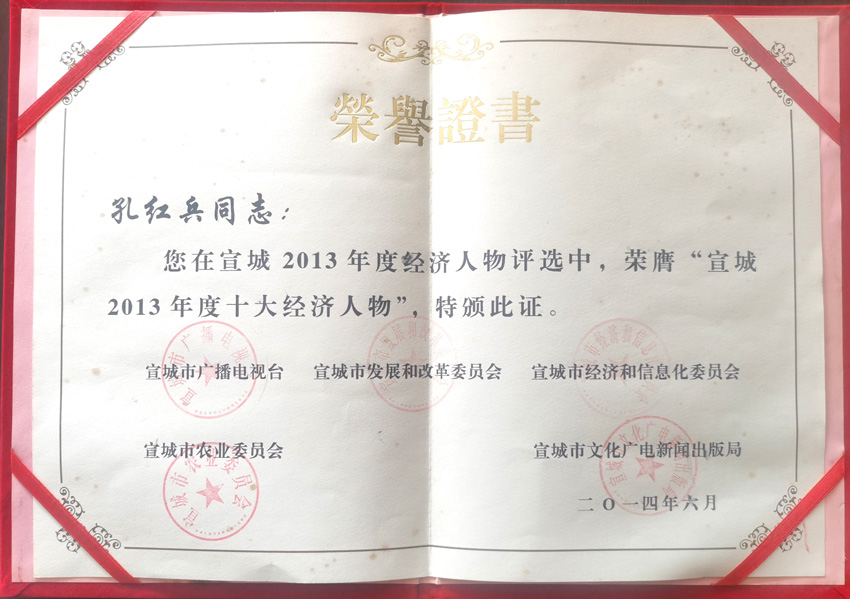 榮譽證書
孔红兵同志：
您在宣城 2013 年度经济人物评选中，荣膺“宣城
2013 年度十大经济人物”，特颁此证。
宣城市广播电视台 宣城市发展和改革委员会 宣城市经济和信息化委员会
宣城市农业委员会 宣城市文化广电新闻出版局
二〇一四年六月
宣城市农业委员会